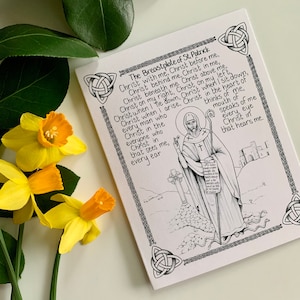 The Breastplate of St. Patrick
Christ with me, Christ before me,
Christ behind me, Christ in me,
Christ beneath me, Christ above me,
Christ on my right, Christ on my left,
Christ when I lie down, Christ when I sit down,
Christ when I arise Christ in the heart of
every man who thinks of me,
Christ in the mouth of
everyone who
Christ in every eye
that sees me,
Christ in
every ear that hears me.